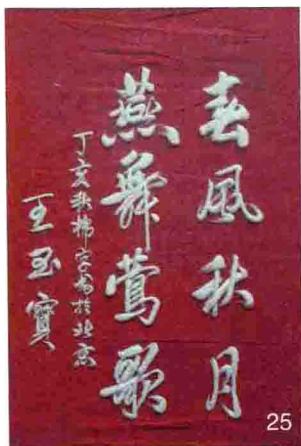 春風秋月
燕舞莺歌
丁亥秋楊宗
於北京
王玉寶
25